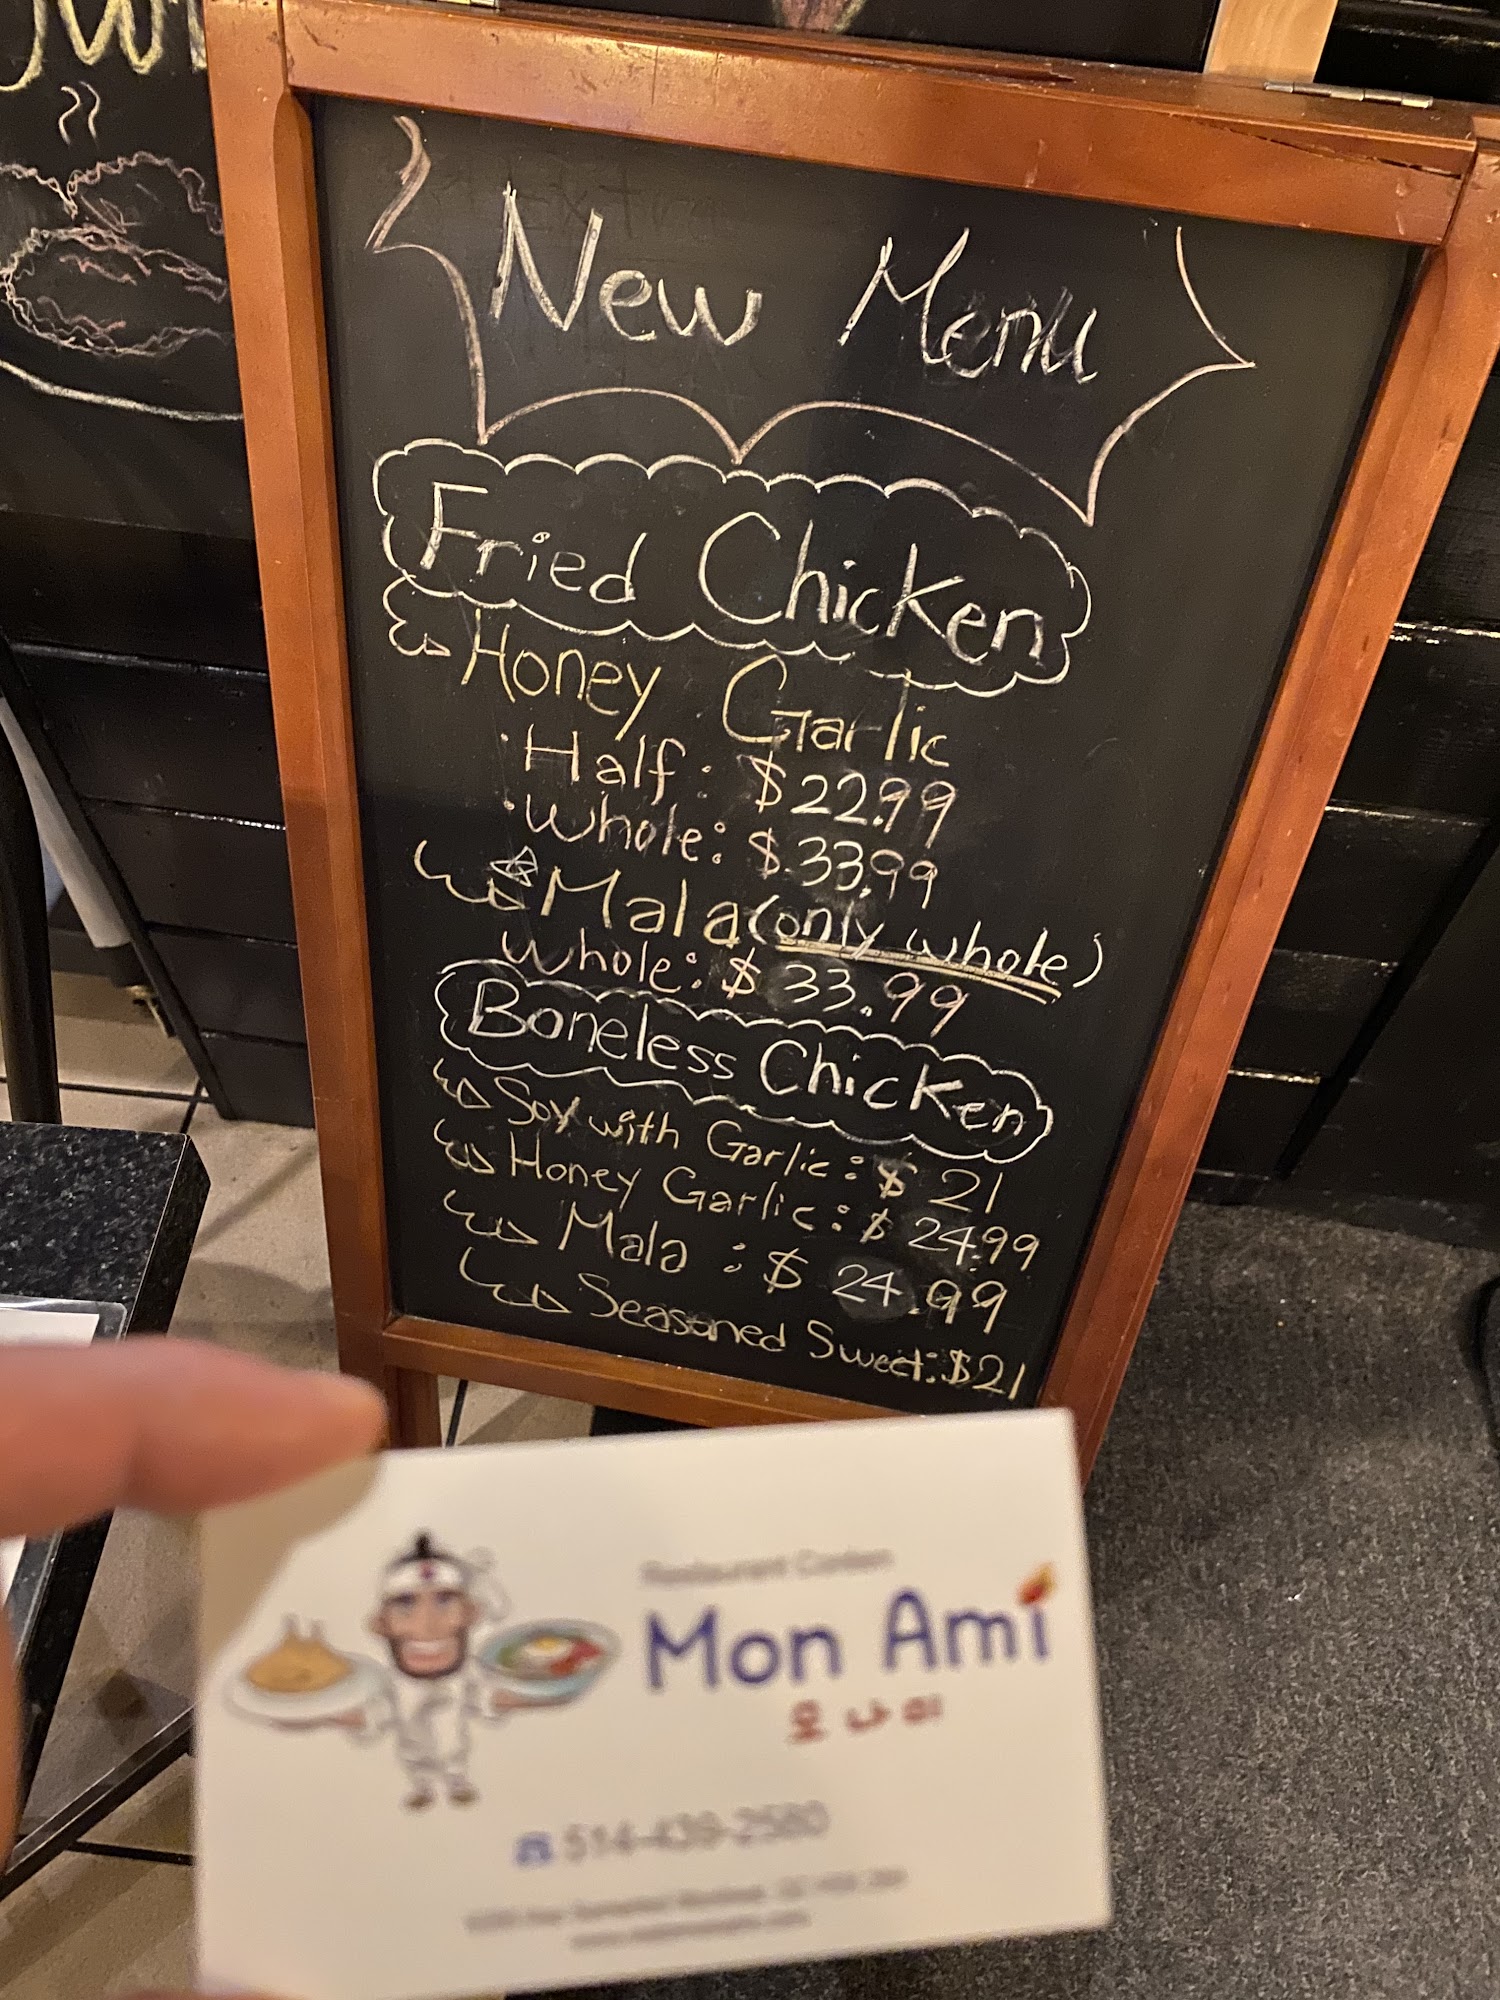 New Menu
Fried Chicken
Honey Garlic
· Half: $22.99
· Whole: $33.99
Mala (only whole)
Whole: $33.99
Boneless Chicken
Soy with Garlic: $21
Honey Garlic: $24.99
Mala : $24.99
Seasoned Sweet: $21
Restaurant Coréen
Mon Ami
모나미
514-439-2580